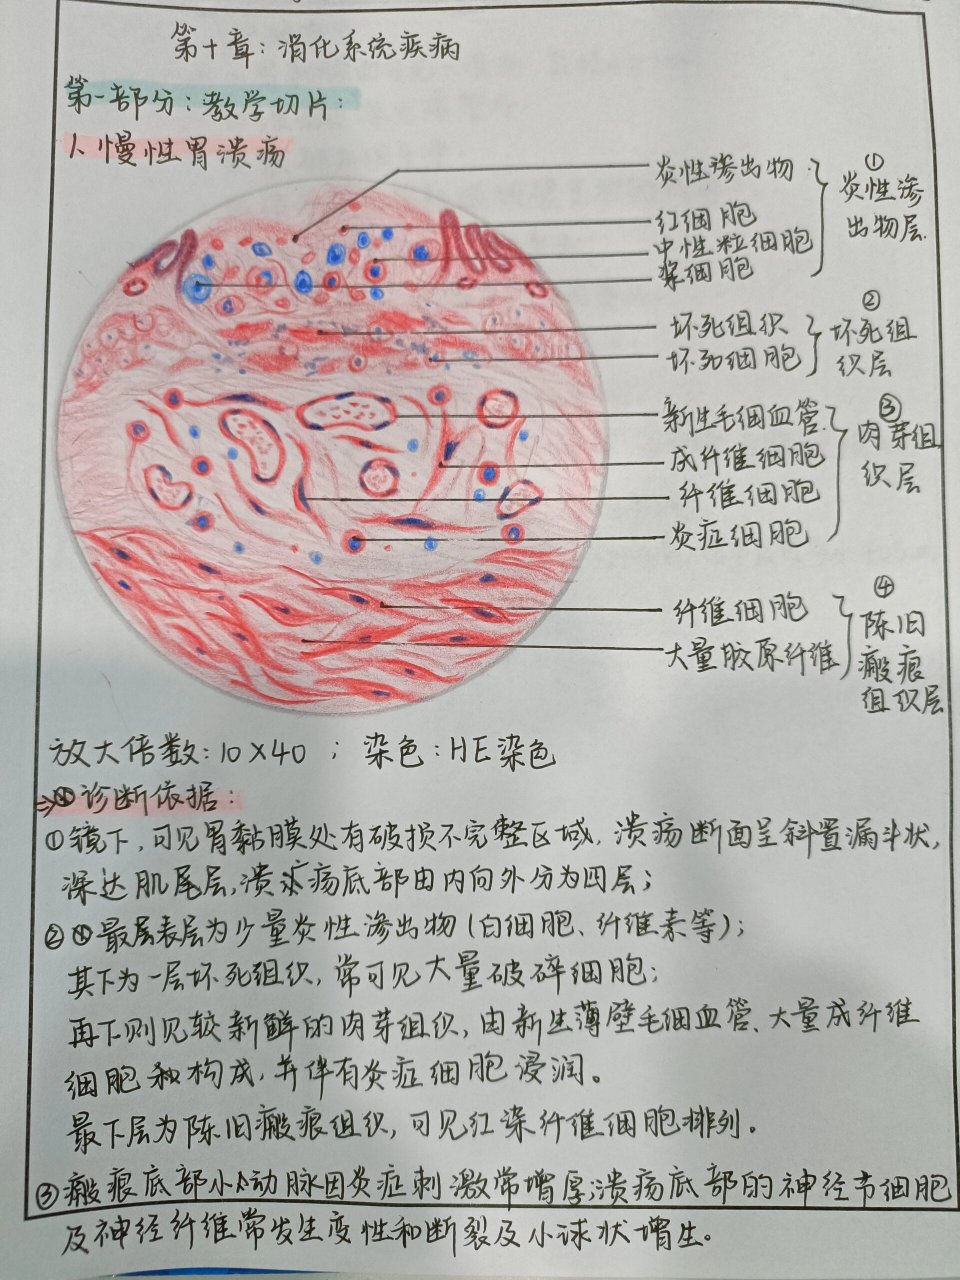 第十章：消化系统疾病
第一部分：教学切片：
1、慢性胃溃疡
炎性渗出物
红细胞
中性粒细胞
浆细胞
①
炎性渗
出物层.
坏死组织
坏死细胞
②
坏死组
织层
新生毛细血管.
成纤维细胞
纤维细胞
炎症细胞
③
肉芽组
织层
纤维细胞
大量胶原纤维
④
陈旧
瘢痕
组织层
放大倍数：10×40 ； 染色：HE染色
⇒诊断依据：
①镜下，可见胃黏膜处有破损不完整区域，溃疡断面呈斜置漏斗状，
深达肌尾层，溃疡底部由内向外分为四层；
②最表层为少量炎性渗出物（白细胞、纤维素等）；
其下为一层坏死组织，常可见大量破碎细胞；
再下则见较新鲜的肉芽组织，由新生薄壁毛细血管、大量成纤维
细胞构成，并伴有炎症细胞浸润。
最下层为陈旧瘢痕组织，可见红染纤维细胞排列。
③瘢痕底部小动脉因炎症刺激常增厚溃疡底部的神经节细胞
及神经纤维常发生变性和断裂及小球状增生。